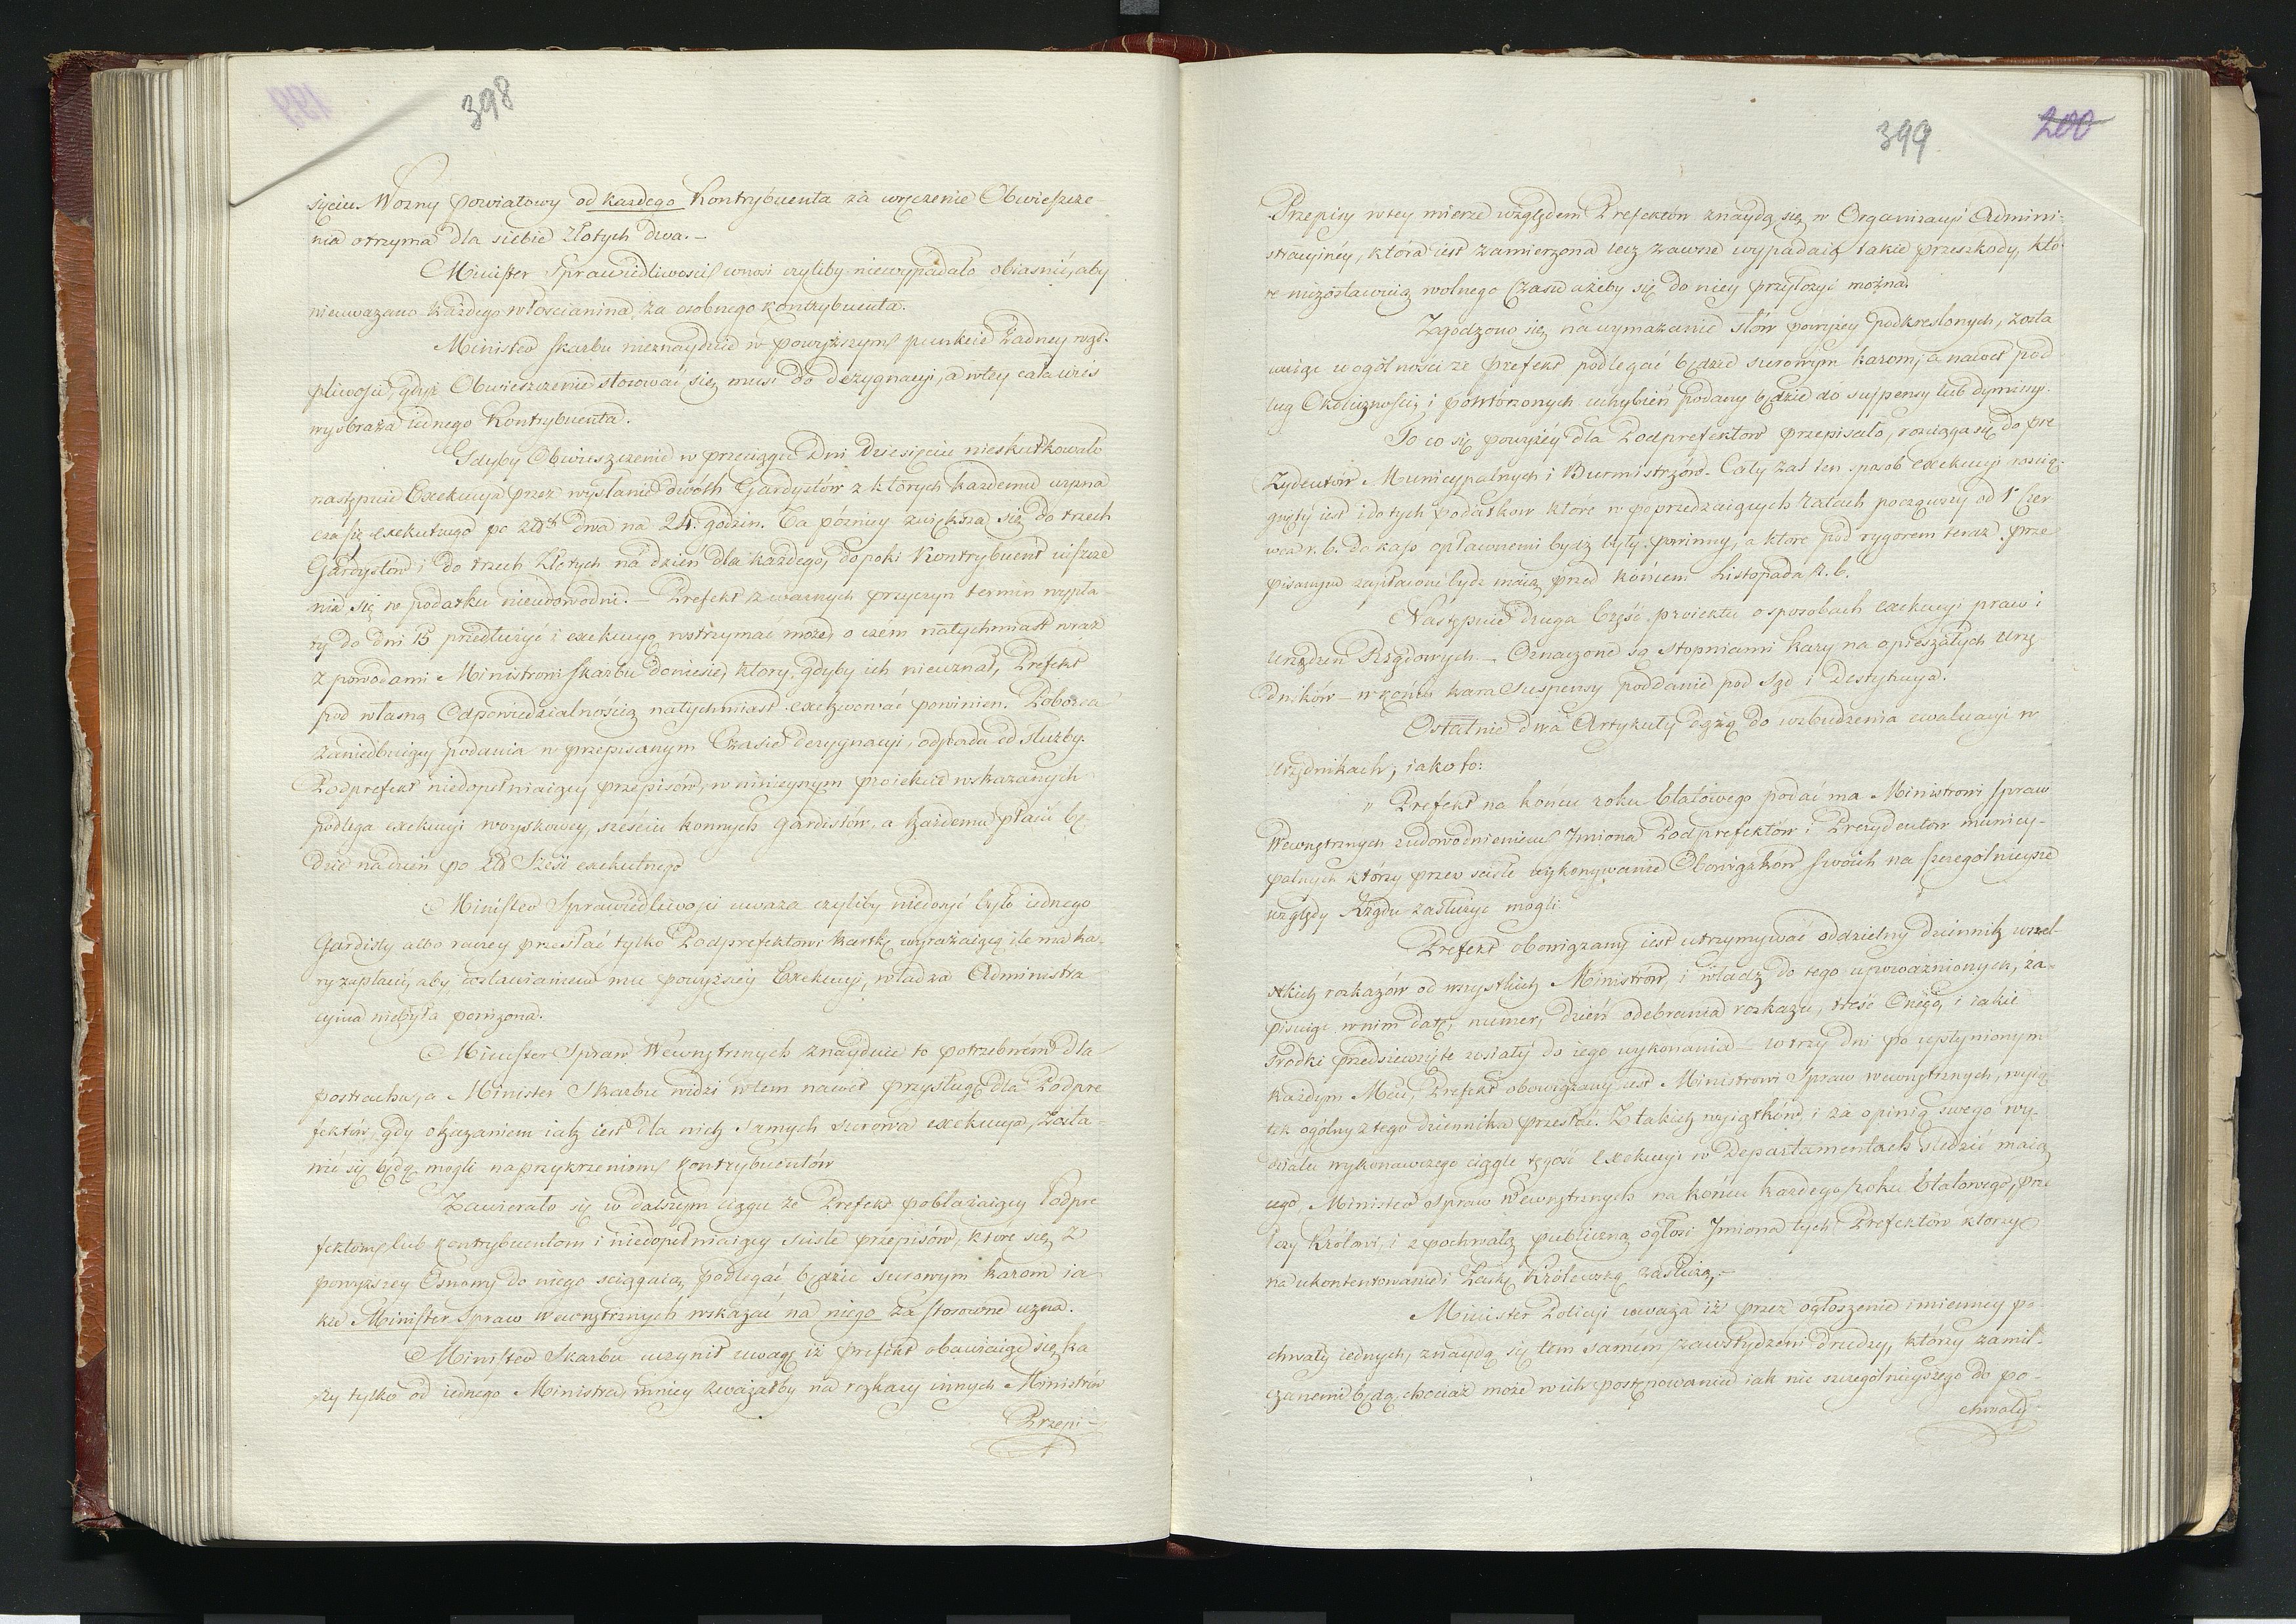 398
sięciu. Woźny powiatowy od każdego Kontrybuenta za wręczenie Obwieszcze-
nia otrzyma dla siebie złotych dwa. –
Minister Sprawiedliwości wnosi czyliby niewypadało obiaśnić, aby
nieuważano każdego włościanina za osobnego kontrybuenta.
Minister skarbu nieznayduie w powyższym punkcie żadney wąt-
pliwości, gdyż Obwieszczenie stosować się musi do dezygnacyi, a w tey cała wieś
wyobraża iednego Kontrybuenta.
Gdyby Obwieszczenie w przeciągu Dni dziesięciu nieskutkowało
następuie Exekucya przez wysłanie dwóch Gardystów z których każdemu wyzna
cza się exekutnego po złtch dwa na 24. godzin. Ta pózniey zwiększa się do trzech
Gardystów i do trzech Złotych na dzień dla każdego, dopoki Kontrybuent uiszcze
nia się w podatku nieudowodni. – Prefekt z ważnych przyczyn termin wypła-
ty do dni 15 przedłużyć i exekucyą wstrzymać może, o czém natychmiast wraz
z powodami Ministrowi skarbu doniesie, ktory, gdyby ich nieuznał, Prefekt
pod własną Odpowiedzialnością natychmiast exekwować powinien. Poborca
zaniedbuiący podania w przepisanym Czasie dezygnacyi, odpada od służby.
Podprefekt niedopełniaiący przepisów, w ninieyszym proiekcie wskazanych
podlega exekucyi woyskowey, sześciu konnych gardistów, a każdemu płacić bę-
dzie na dzień po złł sześć exekutnego
Minister Sprawiedliwości uważa czyliby niedosyć było iednego
Gardisty albo raczey przesłać tylko Podprefektowi kartkę wyrażaiącą ile ma ka-
ry zapłacić, aby wstawianiem mu powyższéy Exekucyi, władza Administra
cyina niebyła poniżona.
Minister Spraw Wewnętrznych znayduie to potrzebném dla
postrachu, a Minister Skarbu widzi w tem nawet przysługę dla Podpre
fektów, gdy okazaniem iak iest dla nich samych surowa exekucya, zosła-
nić się będą mogli naprzykrzeniom kontrybuentów
Zawierało się w dalszym ciągu że Prefekt pobłażaiący Podpre
fektom lub kontrybuentom i niedopełniaiący ściśle przepisów, które się z
powyższey Osnowy do niego ściągaią, podlegać będzie surowym karom ia-
kie Minister Spraw wewnętrznych wskazać na niego za stosowne uzna.
Minister Skarbu uczynił uwagę iż prefekt obawiaiąc się ka
ry tylko od iednego Ministra, mniey zważałby na rozkazy innych Ministrów
Przepi-
399
200
Przepisy w tey mierze względem Prefektów znaydą się w Organizacyi Admini-
stracyinéy, która iest zamierzona lecz zawsze wypadaią takie przeszkody, któ-
re niezostawuią wolnego Czasu ażeby się do niey przyłożyć można.
Zgodzono się na wymazanie słów powyżey podkreślonych, zosta
wuiąc w ogólności że prefekt podlegać będzie surowym karom, a nawet pod
ług Okoliczności, i powtórzonych uchybień podany będzie do suspensy lub dymissyi.
To co się powyżéy dla Podprefektow przepisało, rozciąga się do pre
zydentów Municypalnych i Burmistrzów. Cały zaś ten sposob exekucyi rością-
gnięty iest i do tych podatkow które w poprzedzaiących ratach począwszy od 1 Czer
wca r. b. do kass opłacnemi bydź były powinny, a ktore pod rygorem teraz prze
pisanym zapłacone bydz maią przed końcem Listopada r. b.
Następuie druga Część proiektu o sposobach exekucyi praw i
urządzeń Rządowych. – Oznaczone są stopniami kary na opieszałych Urzę
dników – w końcu kara suspensy poddanie pod Sąd i Destytucya.
Ostatnie dwa Artykuły dążą do wzbudzenia emulacyi w
Urzędnikach, iako to:
„ Prefekt na końcu roku Etatowego podać ma Ministrowi Spraw
Wewnętrznych z udowodnieniem Imiona Podprefektów i Prezydentów municy-
palnych którzy przez ścisłe wykonywanie Obowiązków swoich na szczególnieysze
względy Rządu zasłużyć mogli
Prefekt obowiązany iest utrzymywać oddzielny dziennik wszel-
kich rozkazów od wszystkich Ministrów, i władz do tego upoważnionych, za-
pisuiąc w nim datę, numer, dzień odebrania rozkazu, treść Onego, i iakie
środki przedsięwzięte zostały do iego wykonania – w trzy dni po upłynionym
każdym Mcu, Prefekt obowiązany iest Ministrowi Spraw wewnętrznych, wyią
tek ogólny z tego dziennika przesłać. Z takich wyiątków, i za opinią swego wy-
działu wykonawczego ciągle tęgość exekucyi w Departamentach śledzić maią
cego Minister Spraw Wewnętrznych na końcu każdego roku Etatowego, prze
łoży Królowi, i z pochwałą publiczną ogłosi Imiona tych Prefektów którzy
na ukontentowanie i Łaskę Królewską zasłużą. –
Minister Policyi uważa iż przez ogłoszenie imienney po-
chwały iednych, znaydą się tem samém zawstydzeni drudzy, którzy zamil-
czanemi będą, chociaż może w ich postępowaniu iak nic szczególnieyszego do po-
chwały